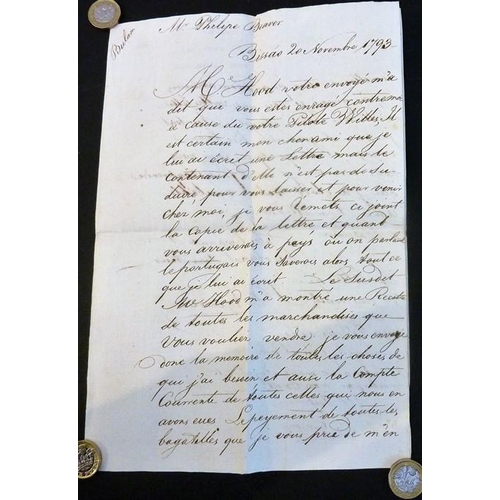 Bulam
Mr Phelipe Beaver
Bissáo 20 Novembre 1793
Mr Hood votre envoyé m'a
dit que vous estes enragé contre moi
a cause du votre Pilote Willes, Il
est certain mon cher ami que je
lui av écrit une Lettre mais le
contenant d'elle n'est pas de Se-
duire pour vous laisser et pour venir
chez moi, je vous remets ci joint
la copie de la lettre et quant
vous arriverès a pays òu on parle
le portugais vous Saurois alors tout ce
que je lui av écrit. Le Susdit
Mr Hood m'a montré une Recette
de toutes les marchandises que
vous voulier vendre, je vous envoye
donc la memoire de toutes les choses de
que j'ai besoin et ausi la Compte
Courente de toutes celles que nous en
avons eues Le peyement de toutes les
bagatelles que je vous prie de m'en